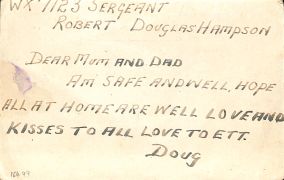 WX 7123 SERGEANT
ROBERT DOUGLAS HAMPSON
DEAR MUM AND DAD
AM SAFE AND WELL, HOPE
ALL AT HOME ARE WELL LOVE AND
KISSES TO ALL LOVE TO ETT.
DOUG